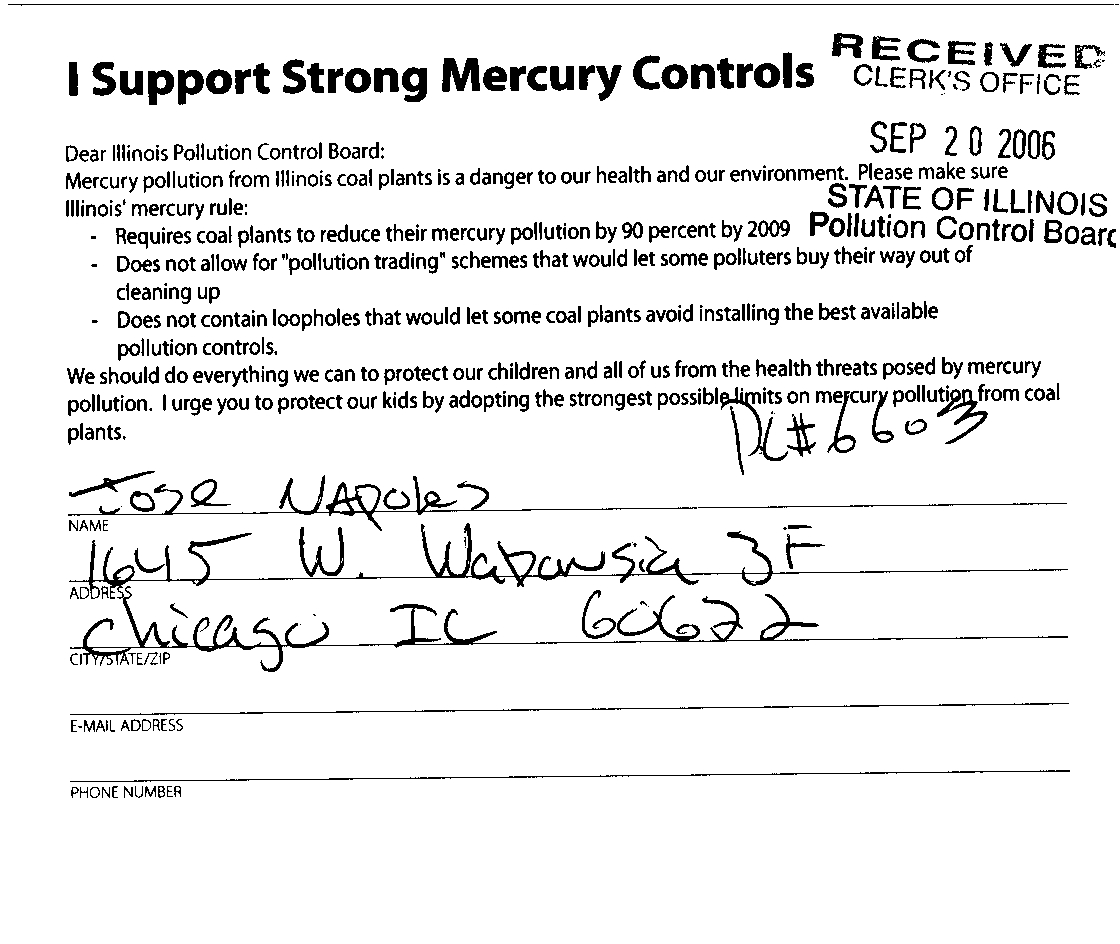 I Support Strong Mercury Controls
RECEIVED
CLERK'S OFFICE
SEP 20 2006
STATE OF ILLINOIS
Pollution Control Board
Dear Illinois Pollution Control Board:
Mercury pollution from Illinois coal plants is a danger to our health and our environment. Please make sure
Illinois' mercury rule:
- Requires coal plants to reduce their mercury pollution by 90 percent by 2009
- Does not allow for "pollution trading" schemes that would let some polluters buy their way out of
cleaning up
- Does not contain loopholes that would let some coal plants avoid installing the best available
pollution controls.
We should do everything we can to protect our children and all of us from the health threats posed by mercury
pollution. I urge you to protect our kids by adopting the strongest possible limits on mercury pollution from coal
plants.
PC#6603
Jose Napoles
NAME
1645 W. Wabansia 3F
ADDRESS
Chicago IL 60622
CITY/STATE/ZIP
E-MAIL ADDRESS
PHONE NUMBER